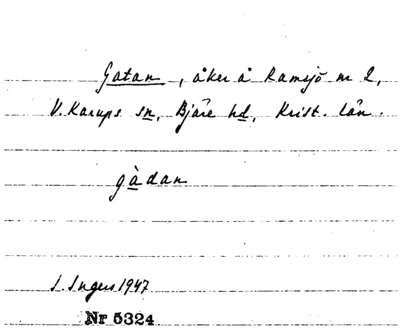 Gatan, åker å Ramsjö nr 2,
V. Karups sn, Bjäre hd, Krist. län.
gàdan
I. Ingers 1947
Nr 5324